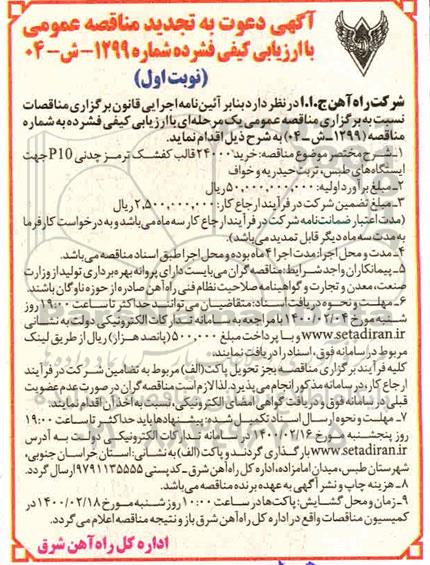 آگهی دعوت به تجدید مناقصه عمومی
با ارزیابی کیفی فشرده شماره ۱۲۹۹-ش-۰۴
(نوبت اول)
شرکت راه آهن ج.ا.ا در نظر دارد بنابر آئین نامه اجرایی قانون برگزاری مناقصات
نسبت به برگزاری مناقصه عمومی یک مرحله ای با ارزیابی کیفی فشرده به شماره
مناقصه (۱۲۹۹-ش-۰۴) به شرح ذیل اقدام نماید.
۱_ شرح مختصر موضوع مناقصه: خرید ۲۴۰۰۰ قالب کفشک ترمز چدنی P10 جهت
ایستگاه‌های طبس، تربت حیدریه و خواف
۲_ مبلغ برآورد اولیه: ۵۰,۰۰۰,۰۰۰,۰۰۰ ریال
۳_ مبلغ تضمین شرکت در فرآیند ارجاع کار: ۲,۵۰۰,۰۰۰,۰۰۰ ریال
(مدت اعتبار ضمانت نامه شرکت در فرآیند ارجاع کار سه ماه می باشد و به درخواست کارفرما
به مدت سه ماه دیگر قابل تمدید می باشد).
۴_ مدت و محل اجرا: مدت اجرا ۴ ماه بوده و محل اجرا طبق اسناد مناقصه می باشد.
۵_ پیمانکاران واجد شرایط: مناقصه گران می بایست دارای پروانه بهره برداری تولید از وزارت
صنعت، معدن و تجارت و گواهینامه صلاحیت نظام فنی راه آهن صادره از حوزه ناوگان باشند.
۶_ مهلت و نحوه دریافت اسناد: متقاضیان می توانند حداکثر تا ساعت ۱۹:۰۰ روز
شنبه مورخ ۱۴۰۰/۰۲/۰۴ با مراجعه به سامانه تدارکات الکترونیکی دولت به نشانی
www.setadiran.ir و با پرداخت مبلغ ۵۰۰,۰۰۰ (پانصد هزار) ریال از طریق لینک
مربوط در سامانه فوق، اسناد را دریافت نمایند.
کلیه فرآیند برگزاری مناقصه بجز تحویل پاکت (الف) مربوط به تضامین شرکت در فرآیند
ارجاع کار، در سامانه مذکور انجام می پذیرد. لذا لازم است مناقصه گران در صورت عدم عضویت
قبلی در سامانه فوق و دریافت گواهی امضای الکترونیکی، نسبت به اخذ آن اقدام نمایند.
۷_ مهلت و نحوه ارسال اسناد تکمیل شده: پیشنهادها باید حداکثر تا ساعت ۱۹:۰۰
روز پنجشنبه مورخ ۱۴۰۰/۰۲/۱۶ در سامانه تدارکات الکترونیکی دولت به آدرس
www.setadiran.ir بارگذاری گردند و پاکت (الف) به نشانی: استان خراسان جنوبی،
شهرستان طبس، میدان امامزاده، اداره کل راه آهن شرق-کدپستی ۹۷۹۱۱۳۵۵۵۵ ارسال گردد.
۸_ هزینه چاپ و نشر آگهی به عهده برنده مناقصه می باشد.
۹_ زمان و محل گشایش: پاکت ها در ساعت ۱۰:۰۰ روز شنبه مورخ ۱۴۰۰/۰۲/۱۸ در
کمیسیون مناقصات واقع در اداره کل راه آهن شرق باز و نتیجه مناقصه اعلام می گردد.
اداره کل راه آهن شرق